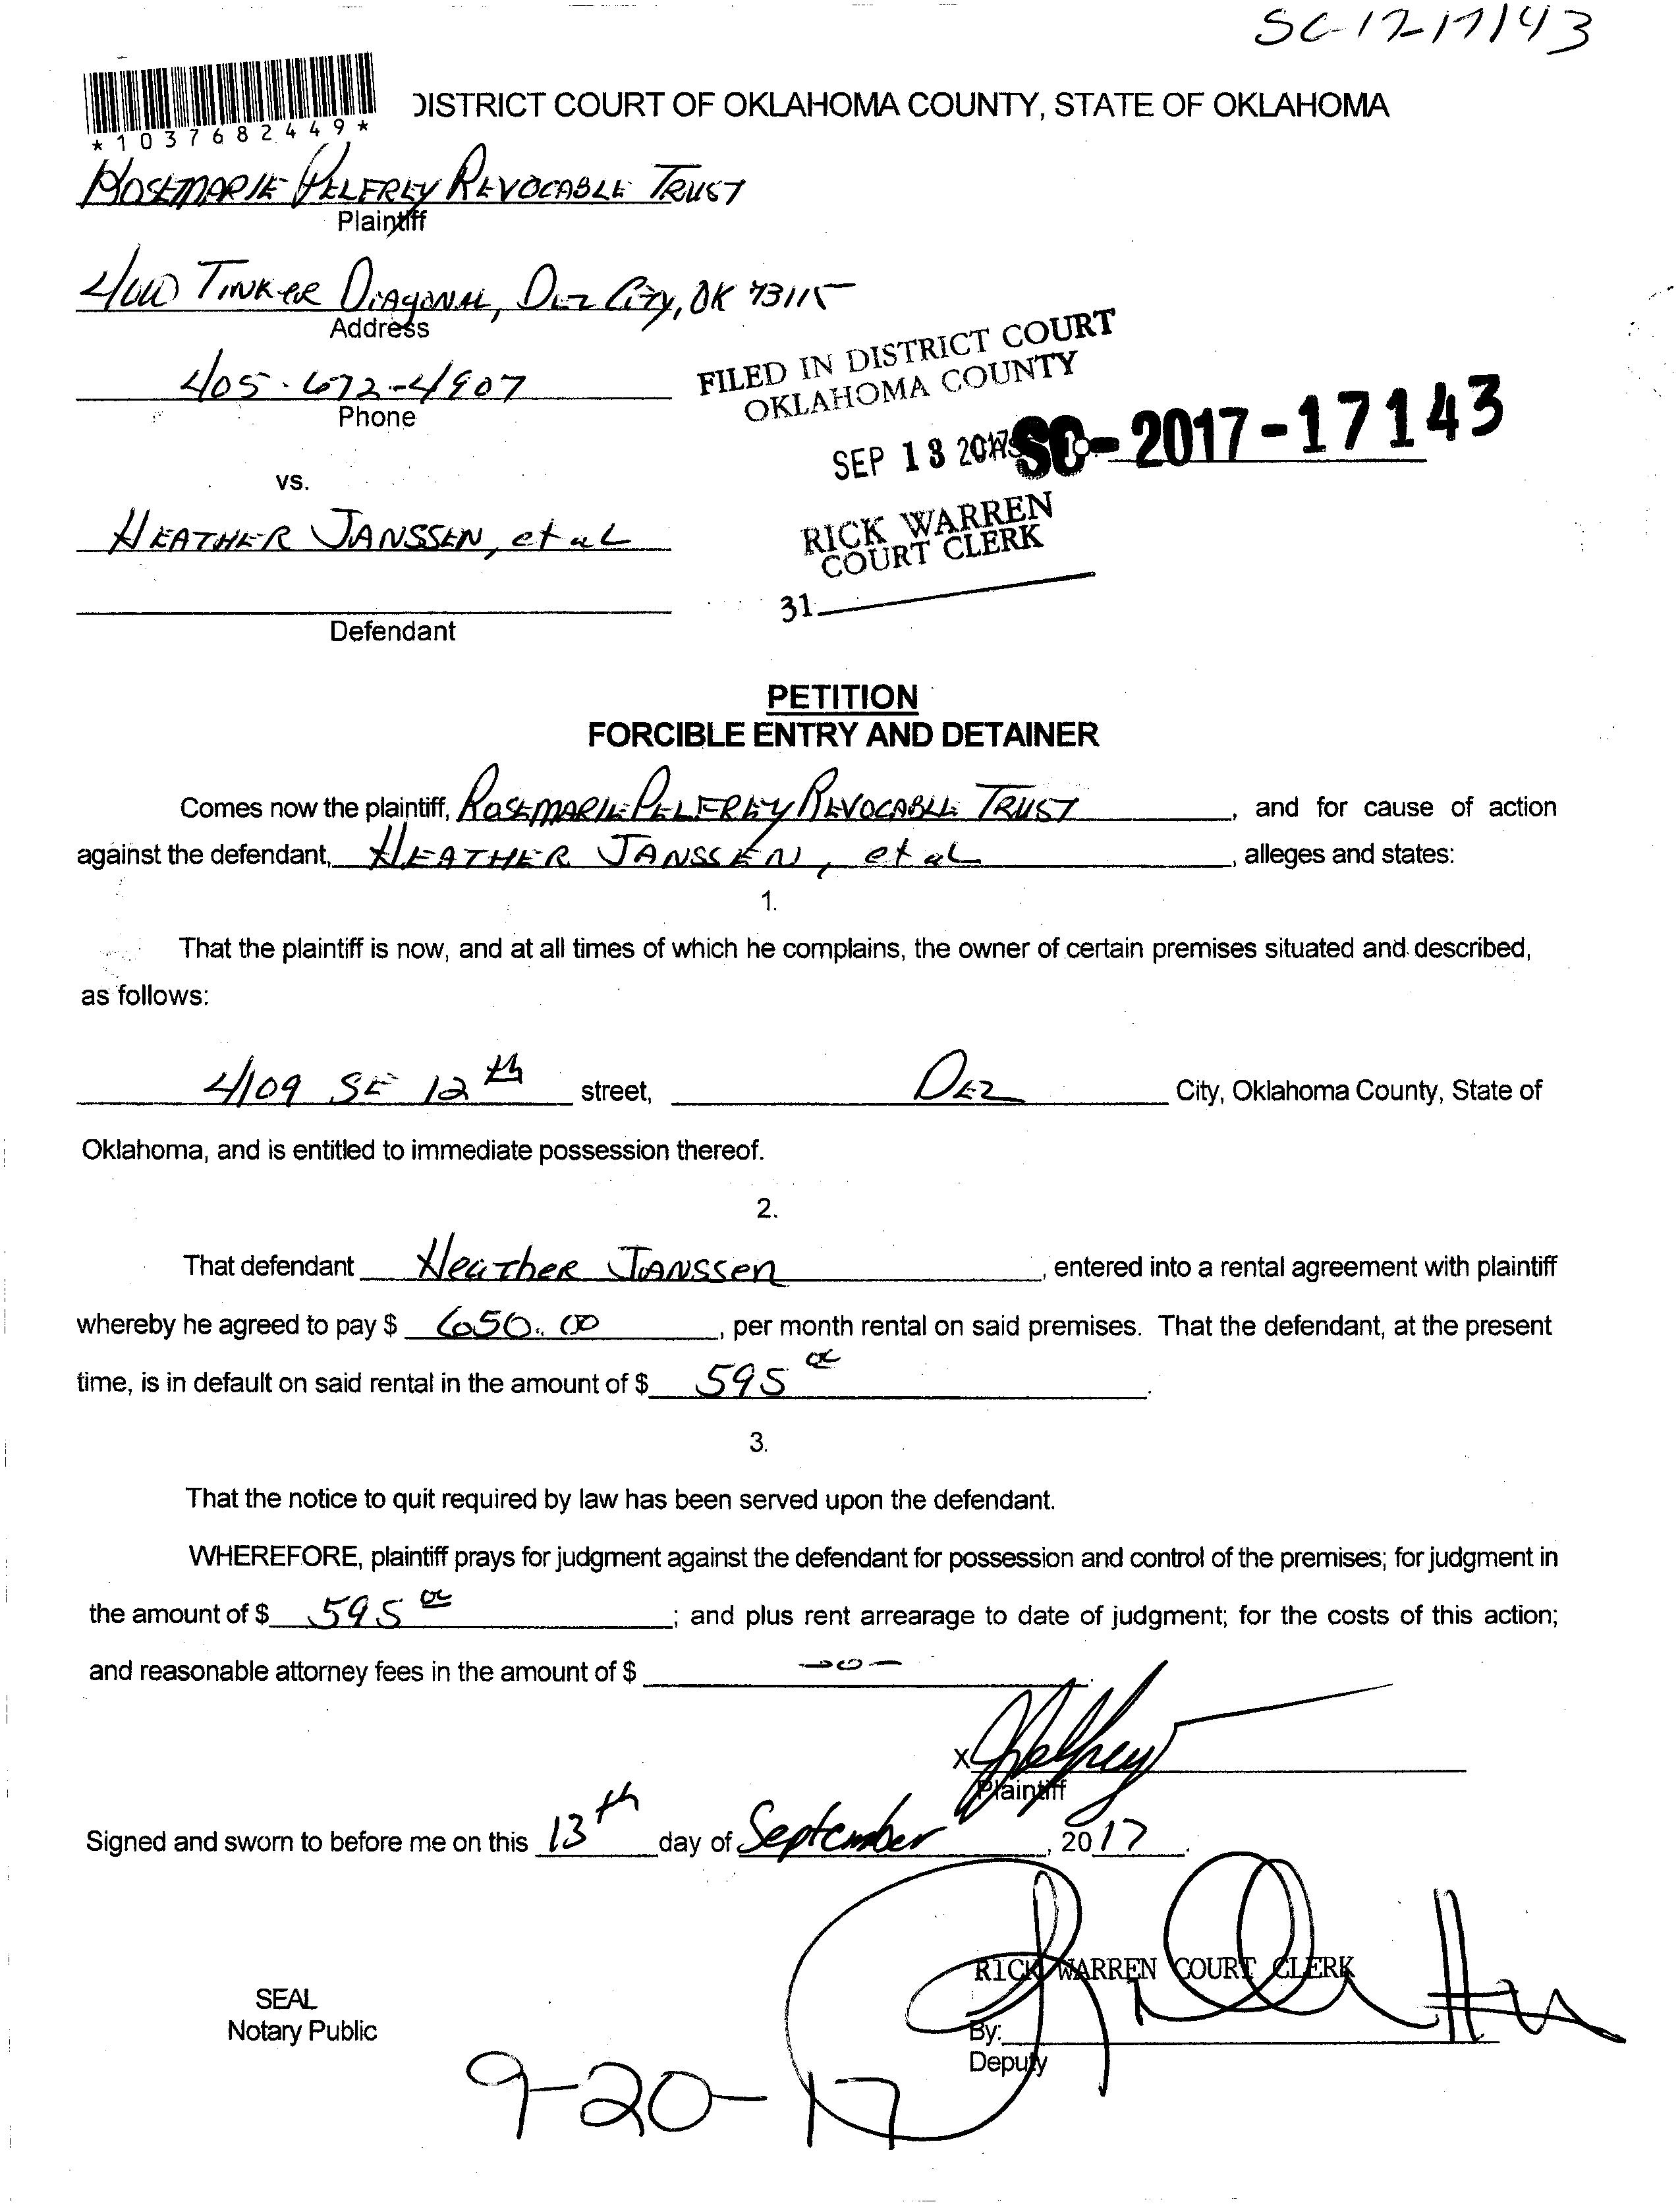 SC-17-17143
*1037682449*
DISTRICT COURT OF OKLAHOMA COUNTY, STATE OF OKLAHOMA
ROSEMARIE PELFREY REVOCABLE TRUST
Plaintiff
TINKER DIAGONAL, DEL CITY, OK 73115
Address
405-672-4907
Phone
FILED IN DISTRICT COURT
OKLAHOMA COUNTY
SEP 13 2017
SC-2017-17143
vs.
RICK WARREN
COURT CLERK
HEATHER JANSSEN, et al
31
Defendant
PETITION
FORCIBLE ENTRY AND DETAINER
Comes now the plaintiff, ROSEMARIE PELFREY REVOCABLE TRUST, and for cause of action
against the defendant, HEATHER JANSSEN, et al, alleges and states:
1.
That the plaintiff is now, and at all times of which he complains, the owner of certain premises situated and described,
as follows:
4109 SE 12th street, DEL City, Oklahoma County, State of
Oklahoma, and is entitled to immediate possession thereof.
2.
That defendant Heather Janssen, entered into a rental agreement with plaintiff
whereby he agreed to pay $ 650.00, per month rental on said premises. That the defendant, at the present
time, is in default on said rental in the amount of $ 595 00.
3.
That the notice to quit required by law has been served upon the defendant.
WHEREFORE, plaintiff prays for judgment against the defendant for possession and control of the premises; for judgment in
the amount of $ 595 00; and plus rent arrearage to date of judgment; for the costs of this action;
and reasonable attorney fees in the amount of $ -0-.
X Pelfrey
Plaintiff
Signed and sworn to before me on this 13th day of September, 2017.
RICK WARREN COURT CLERK
SEAL
Notary Public
By:
Deputy
9-20-17